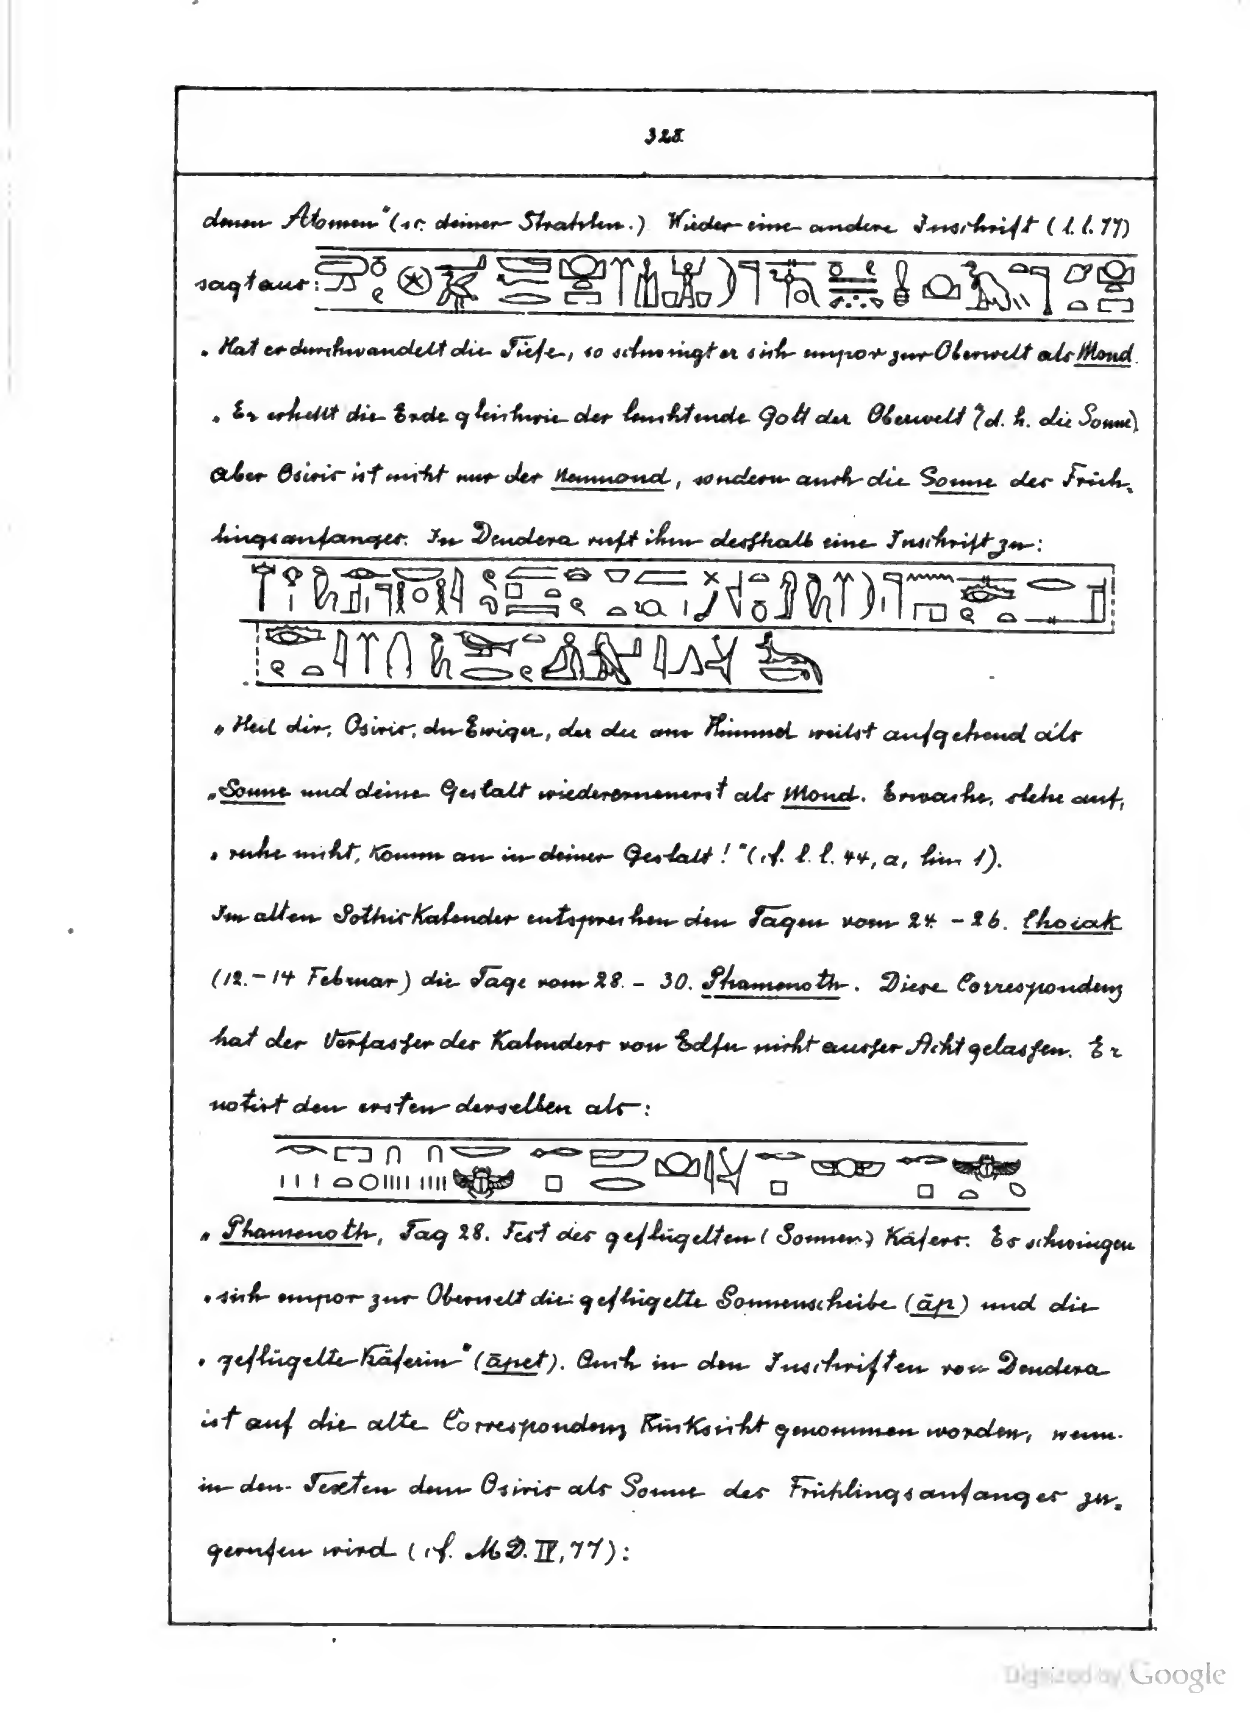 328.
denen Atomen" (sc. deiner Strahlen.) Wieder eine andere Inschrift (l. l. 77)
sagt aus:
„Hat er durchwandelt die Tiefe, so schwingt er sich empor zur Oberwelt als Mond.
„Er erhellt die Erde gleichwie der leuchtende Gott der Oberwelt" (d. h. die Sonne)
aber Osiris ist nicht nur der Neumond, sondern auch die Sonne des Früh-
lingsanfanges. In Dendera ruft ihm desshalb eine Inschrift zu:
„Heil dir, Osiris, du Ewiger, der du am Himmel weilst aufgehend als
„Sonne und deine Gestalt wiedererneuerst als Mond. Erwache, stehe auf,
„ruhe nicht, komm an in deiner Gestalt!" (cf. l. l. 44, a, lin. 1).
Im alten Sothiskalender entsprechen den Tagen vom 24. – 26. Choiak
(12. – 14 Februar) die Tage vom 28. – 30. Phamenoth. Diese Correspondenz
hat der Verfasser des Kalenders von Edfu nicht ausser Acht gelassen. Er
notirt den ersten derselben als:
„Phamenoth, Tag 28. Fest des geflügelten (Sonnen-) Käfers. Es schwingen
„sich empor zur Oberwelt die geflügelte Sonnenscheibe (āp) und die
„geflügelte Käferin" (āpet). Auch in den Inschriften von Dendera
ist auf die alte Correspondenz Rücksicht genommen worden, wenn
in den Texten dem Osiris als Sonne des Frühlingsanfanges zu-
gerufen wird (cf. MD. IV, 77):
Digitized by Google